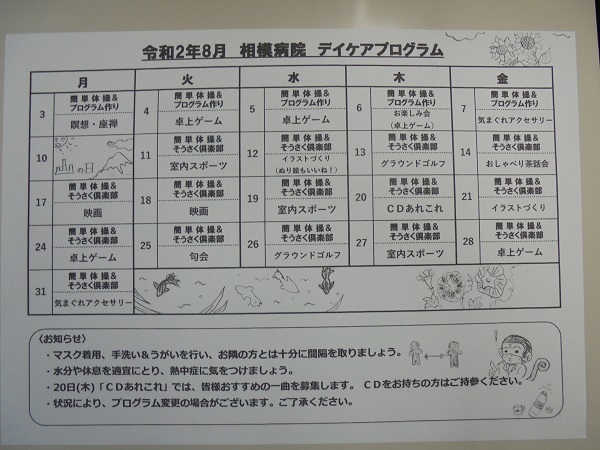 令和2年8月 相模病院 デイケアプログラム
月 火 水 木 金
3 簡単体操&プログラム作り
瞑想・座禅
4 簡単体操&プログラム作り
卓上ゲーム
5 簡単体操&プログラム作り
卓上ゲーム
6 簡単体操&プログラム作り
お楽しみ会
(卓上ゲーム)
7 簡単体操&プログラム作り
気まぐれアクセサリー
10 山の日
11 簡単体操&そうさく倶楽部
室内スポーツ
12 簡単体操&そうさく倶楽部
イラストづくり
(ぬり絵もいいね!)
13 簡単体操&そうさく倶楽部
グラウンドゴルフ
14 簡単体操&そうさく倶楽部
おしゃべり茶話会
17 簡単体操&そうさく倶楽部
映画
18 簡単体操&そうさく倶楽部
映画
19 簡単体操&そうさく倶楽部
室内スポーツ
20 簡単体操&そうさく倶楽部
CDあれこれ
21 簡単体操&そうさく倶楽部
イラストづくり
24 簡単体操&そうさく倶楽部
卓上ゲーム
25 簡単体操&そうさく倶楽部
句会
26 簡単体操&そうさく倶楽部
グラウンドゴルフ
27 簡単体操&そうさく倶楽部
室内スポーツ
28 簡単体操&そうさく倶楽部
卓上ゲーム
31 簡単体操&そうさく倶楽部
気まぐれアクセサリー
〈お知らせ〉
・マスク着用、手洗い&うがいを行い、お隣の方とは十分に間隔を取りましょう。
・水分や休息を適宜にとり、熱中症に気をつけましょう。
・20日(木)「CDあれこれ」では、皆様おすすめの一曲を募集します。 CDをお持ちの方はご持参ください。
・状況により、プログラム変更の場合がございます。ご了承ください。